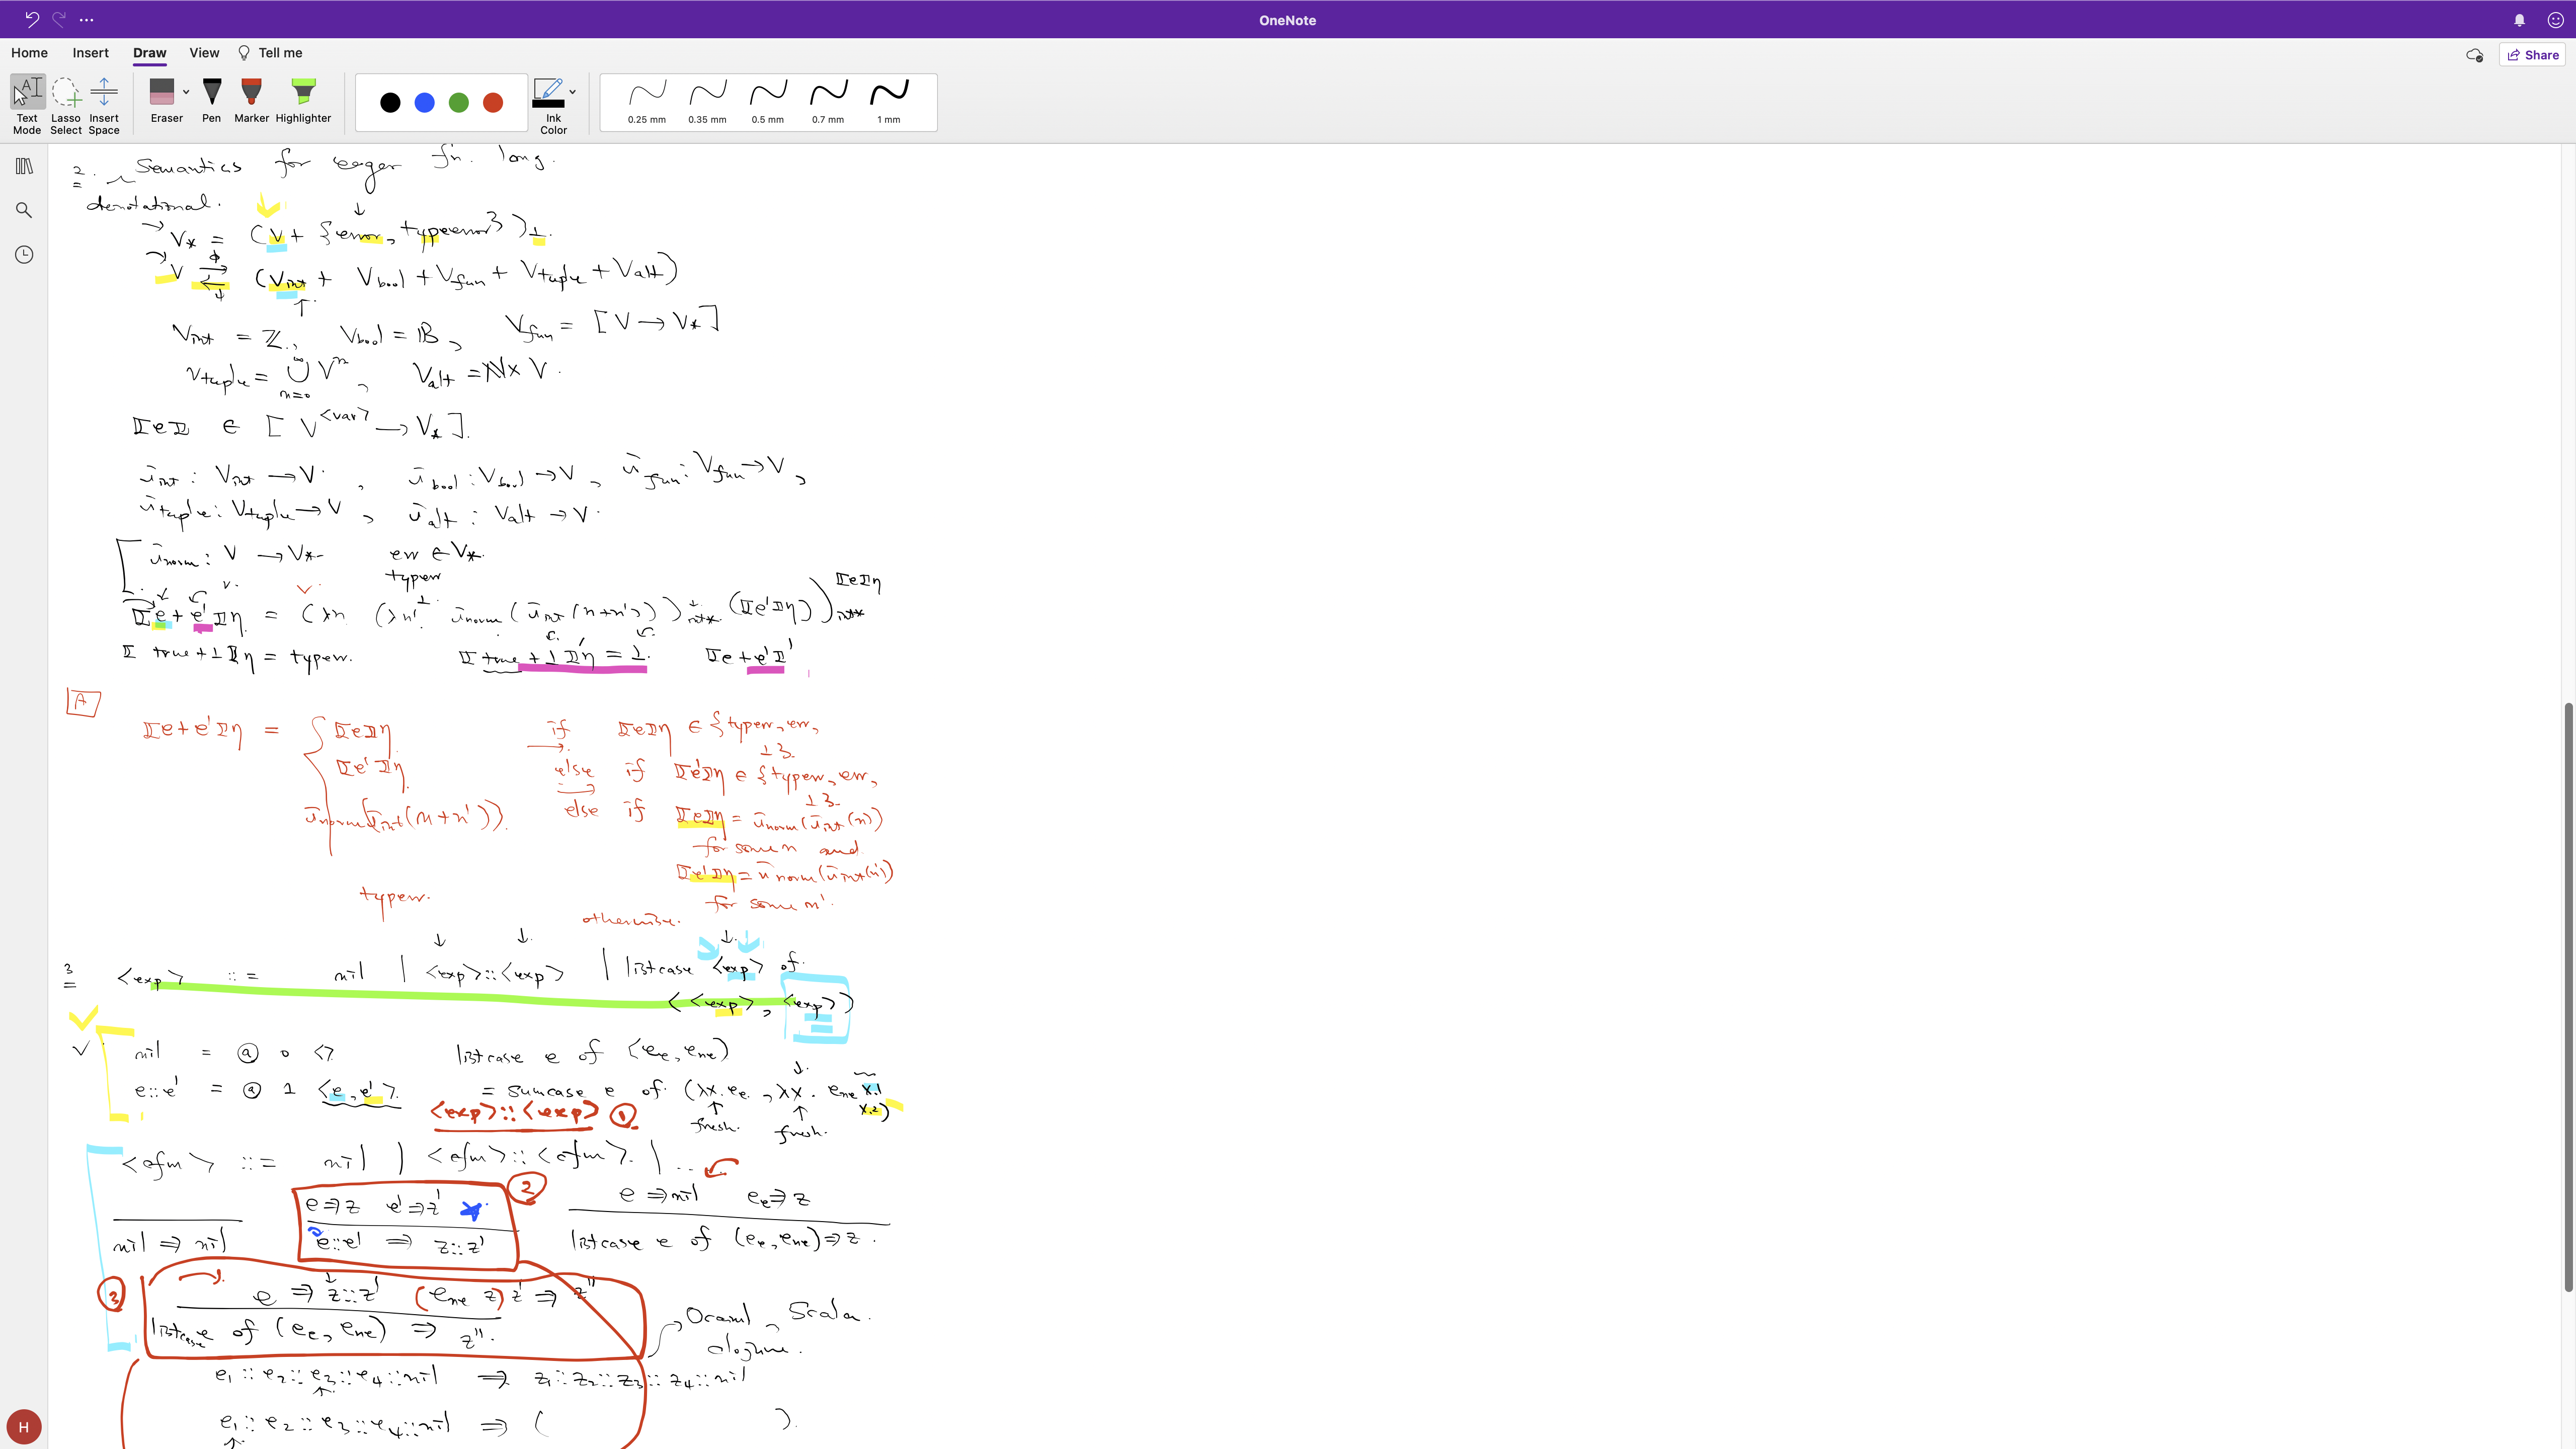 OneNote
Home Insert Draw View Tell me
Share
Text Mode Lasso Select Insert Space Eraser Pen Marker Highlighter Ink Color 0.25 mm 0.35 mm 0.5 mm 0.7 mm 1 mm
2. Semantics for eager fn. lang.
denotational.
V* = (V + {error, typeerror})⊥.
V ⇄ (Vint + Vbool + Vfun + Vtuple + Valt)
ϕ
ψ
Vint = ℤ, Vbool = 𝔹, Vfun = [V → V*]
Vtuple = ∪ₙ₌₀^∞ Vⁿ, Valt = ℕ × V.
⟦e⟧ ∈ [V^<var> → V*].
ūint : Vint → V, ūbool : Vbool → V, ūfun : Vfun → V,
ūtuple : Vtuple → V, ūalt : Valt → V.
ūnorm : V → V* err ∈ V*.
typerr
⟦e + e'⟧η = (λn. (λn'. ūnorm(ūint(n+n')))int* (⟦e'⟧η))int* ⟦e⟧η
⟦true + 1⟧η = typerr. ⟦true + ⊥⟧'η = ⊥. ⟦e + e'⟧'
A
⟦e + e'⟧η = { ⟦e⟧η if ⟦e⟧η ∈ {typerr, err, ⊥}.
⟦e'⟧η. else if ⟦e'⟧η ∈ {typerr, err, ⊥}.
ūnorm(ūint(n+n')). else if ⟦e⟧η = ūnorm(ūint(n))
for some n and
⟦e'⟧η = ūnorm(ūint(n'))
for some n'.
typerr. otherwise.
3 <exp> ::= nil | <exp>::<exp> | listcase <exp> of
(<exp>, <exp>)
nil = @ 0 <> listcase e of (eₑ, eₙₑ)
e::e' = @ 1 <e, e'>. = sumcase e of (λx. eₑ, λx. eₙₑ x.1 x.2)
<exp>::<exp> ① fresh. fresh.
<cfm> ::= nil | <cfm>::<cfm>. | ...
②
e ⇒ z e' ⇒ z' e ⇒ nil eₑ ⇒ z
nil ⇒ nil e::e' ⇒ z::z' listcase e of (eₑ, eₙₑ) ⇒ z.
③ e ⇒ z::z' (eₙₑ z) z' ⇒ z''
listcase e of (eₑ, eₙₑ) ⇒ z''. Ocaml, Scala.
e₁::e₂::e₃::e₄::nil ⇒ z₁::z₂::z₃::z₄::nil
e₁::e₂::e₃::e₄::nil ⇒ ( ).
H